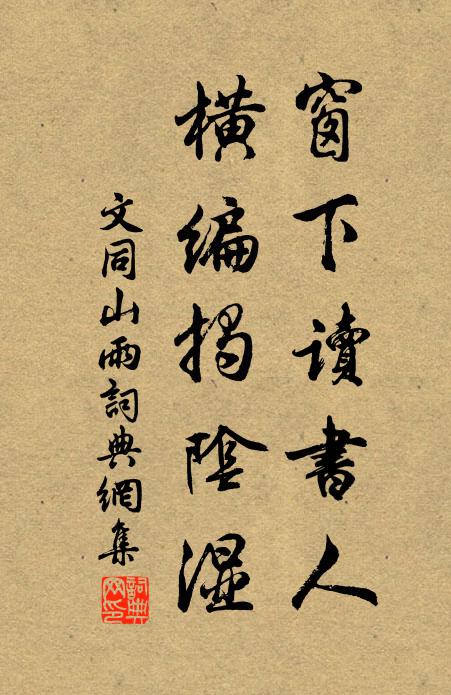 窗下讀書人
橫編揭陰濕
文同山雨詞典網集
詞典網印